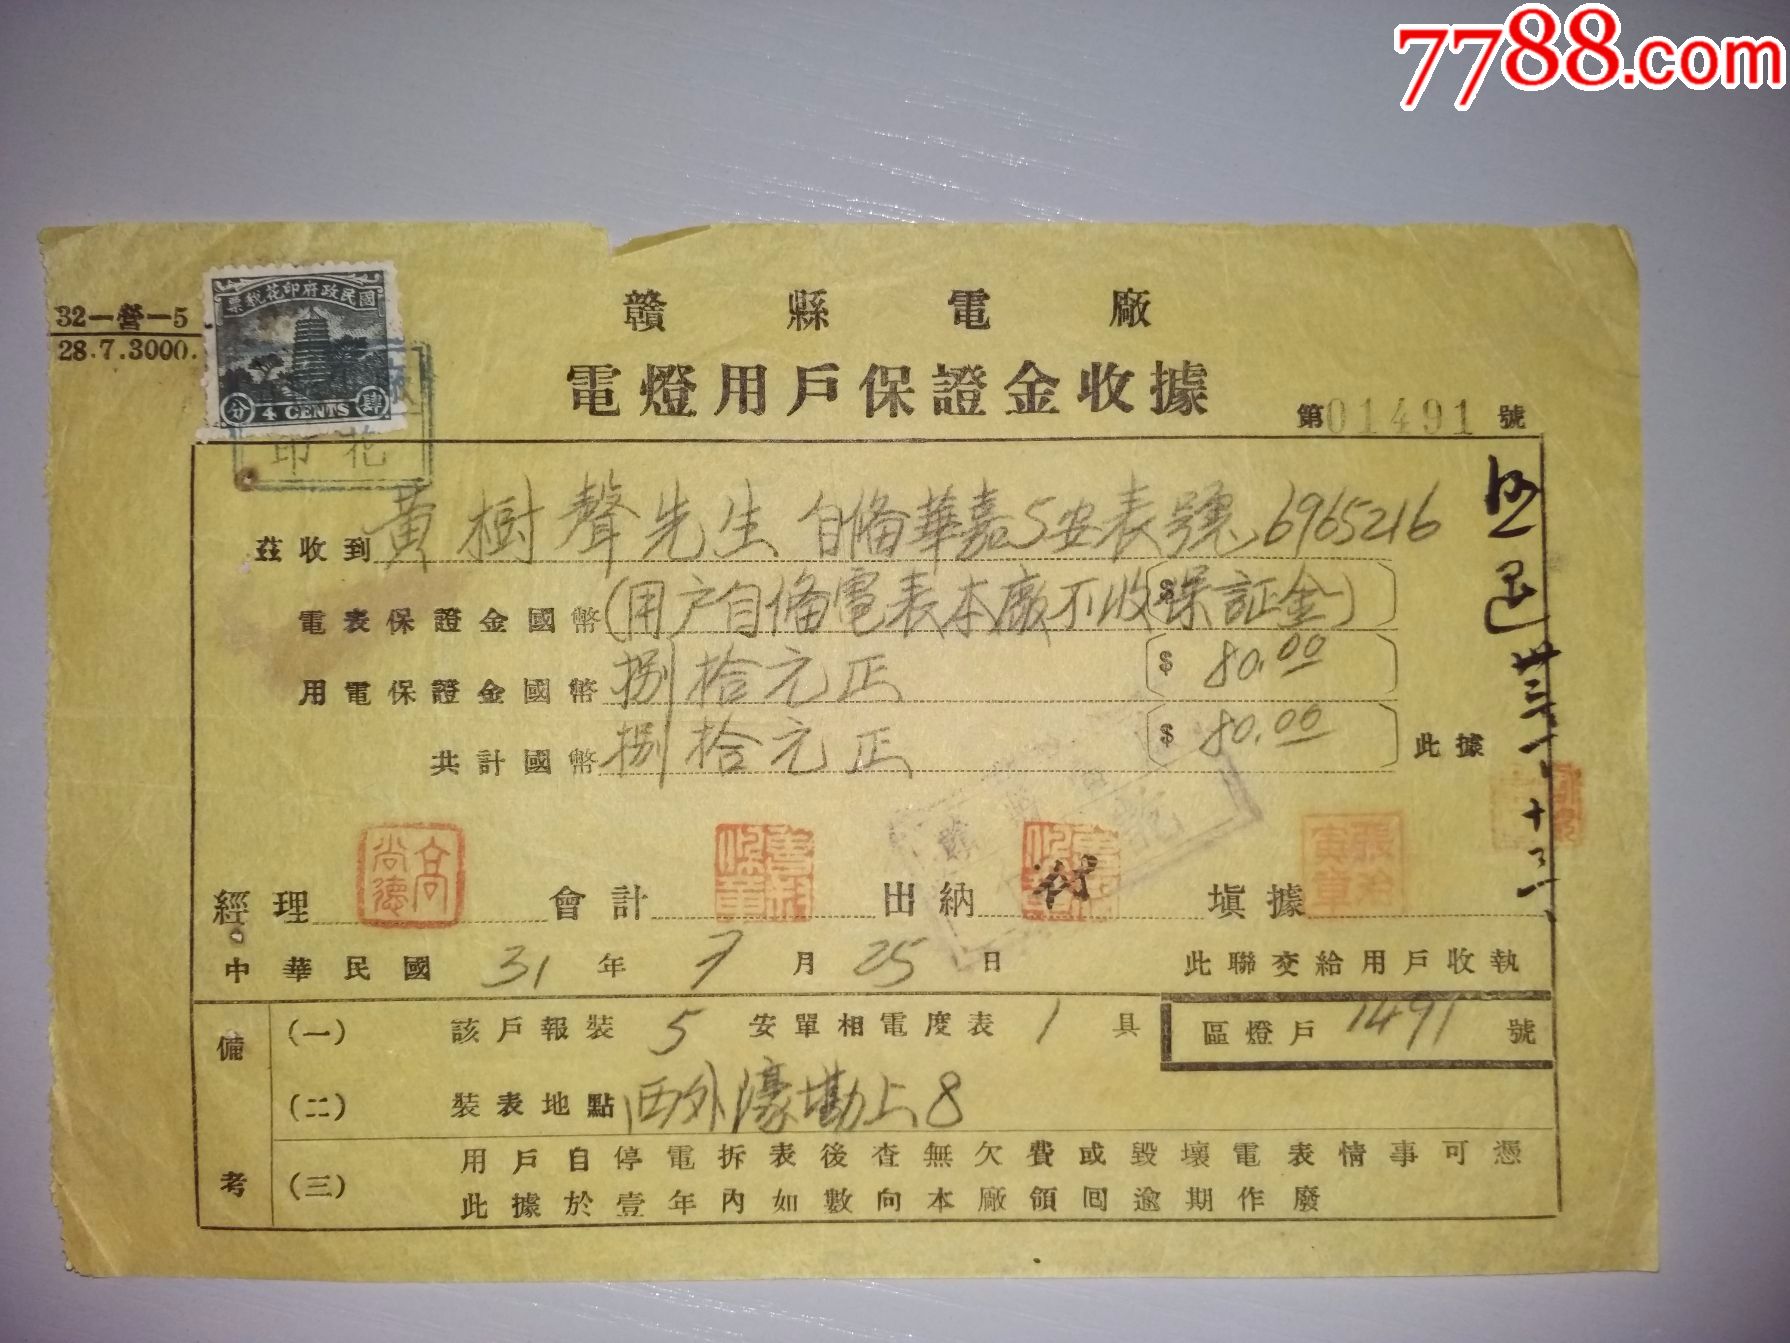 7788.com
國民政府印花稅票
分 4 CENTS 肆
32—營—5
28.7.3000.
印花
贛縣電廠
電燈用戶保證金收據
第01491號
茲收到黃樹聲先生 自備華嘉5安表號6965216
電表保證金國幣(用户自備電表本廠不收保証金) $
用電保證金國幣捌拾元正 $ 80.00
共計國幣捌拾元正 $ 80.00 此據
卅三、一、十三
經理 高尚德 會計 出納 填據
中華民國31年7月25日 此聯交給用戶收執
備考
(一) 該戶報裝5安單相電度表1具 區燈戶1491號
(二) 裝表地點西外濠墈上8
(三) 用戶自停電拆表後查無欠費或毀壞電表情事可憑
此據於壹年內如數向本廠領回逾期作廢